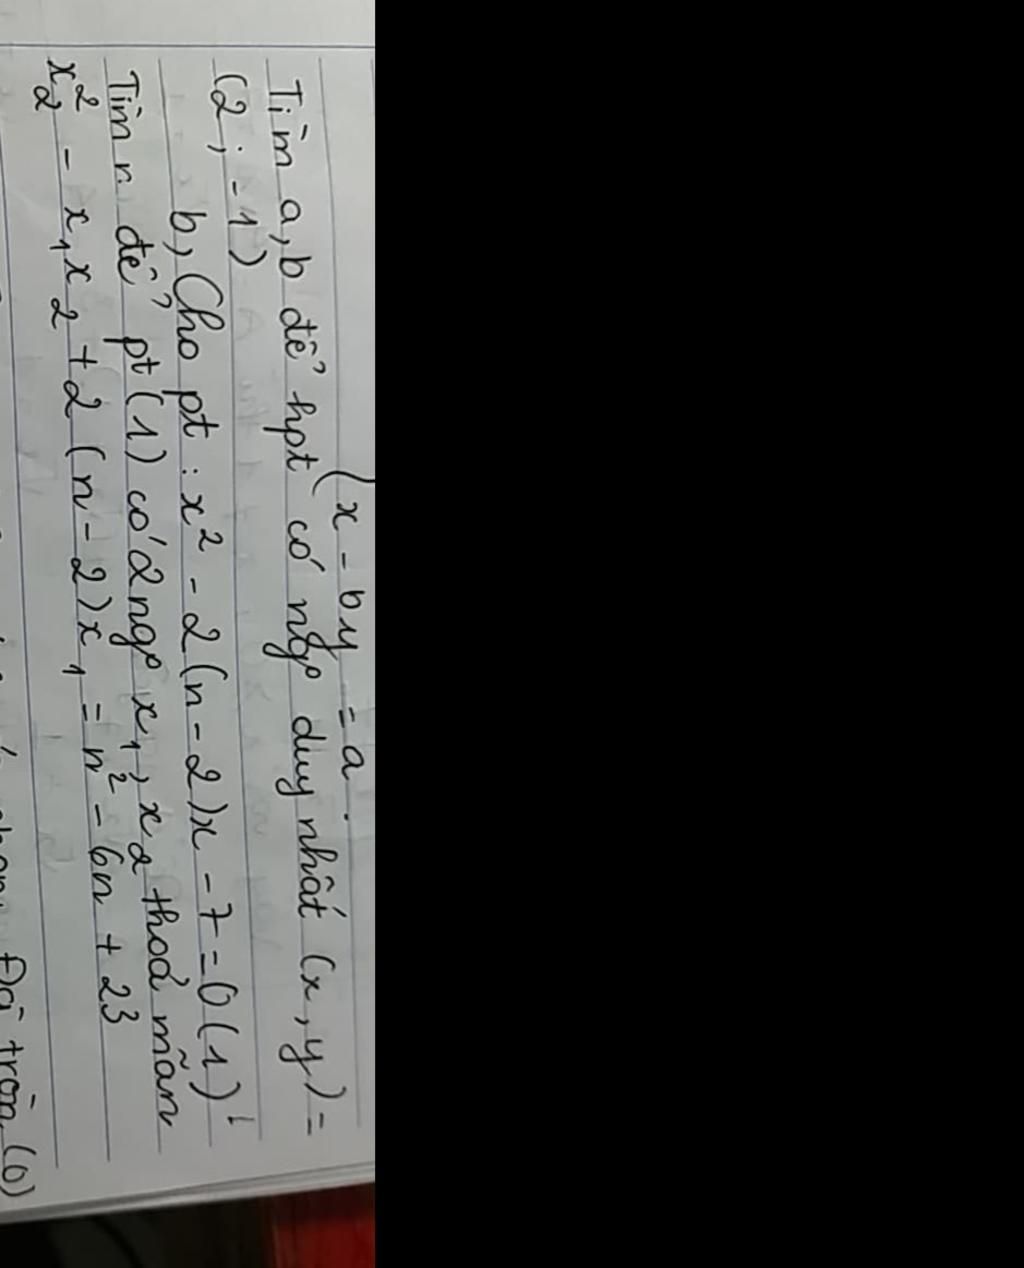 ( x - by = a.
Tìm a, b để hpt có ngo duy nhất (x, y) =
(2; -1)
b, Cho pt : x² - 2(n - 2)x - 7 = 0 (1)
Tìm n để pt (1) có 2 ngo x₁, x₂ thoả mãn
x₂² - x₁x₂ + 2(n - 2)x₁ = n² - 6n + 23
tròn (O)